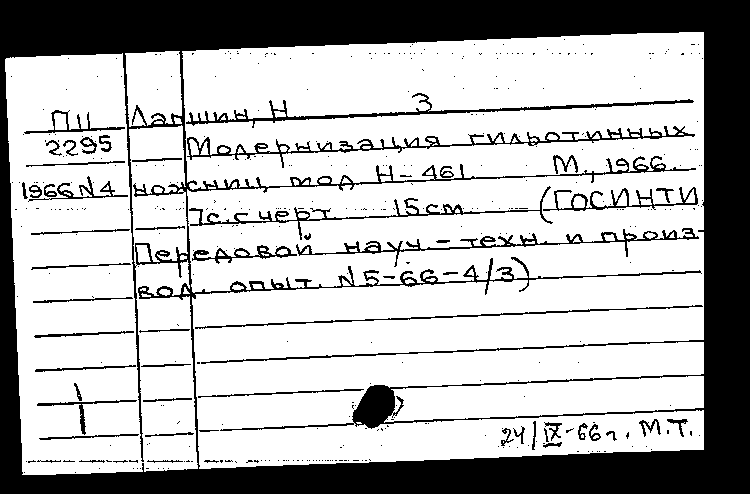 П11 Лапшин, Н 3
2295 Модернизация гильотинных
1966 N4 ножниц мод Н-461. М., 1966.
7с. с черт. 15см. (ГОСИНТИ
Передовой науч.-техн. и произ-
вод. опыт. N5-66-4/3).
24/IX-66г. М.Т.